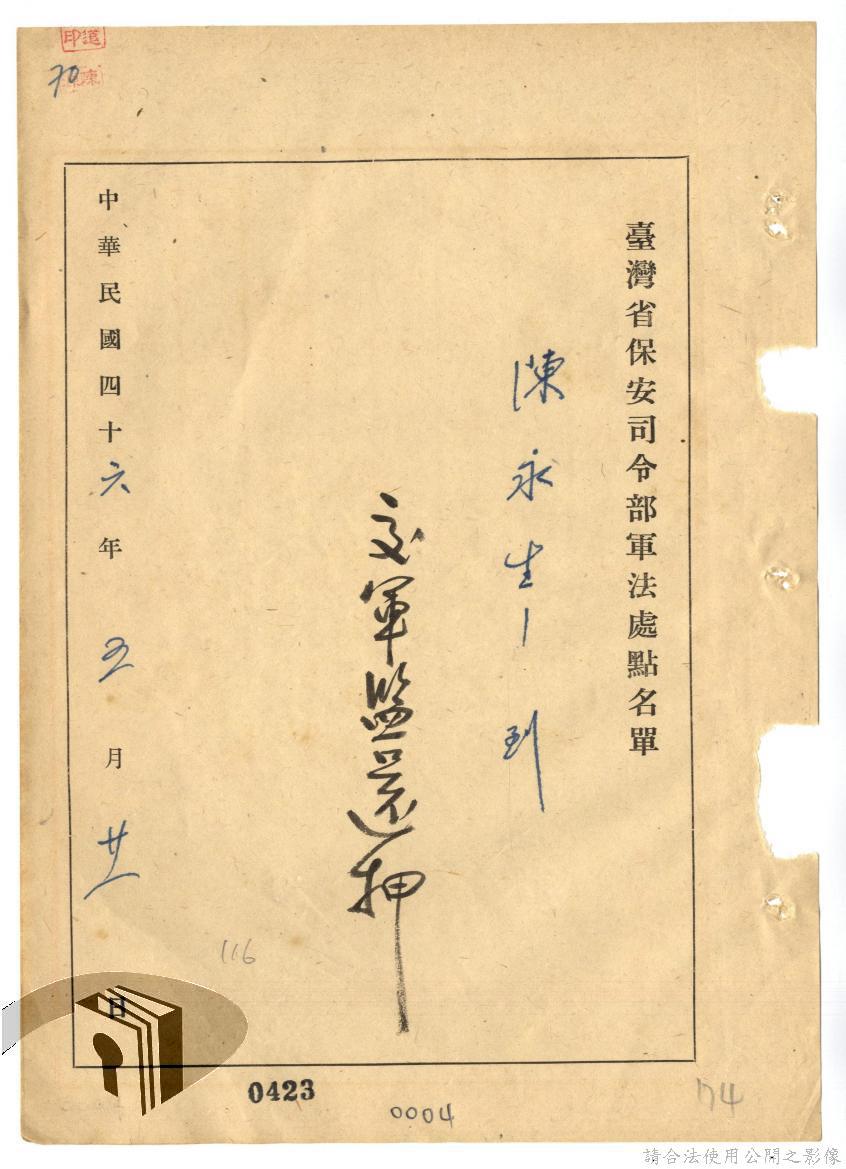 臺灣省保安司令部軍法處點名單
陳永生 到
交軍監還押
中華民國四十六年五月廿一日
70
116
0423
0004
174
請合法使用公開之影像